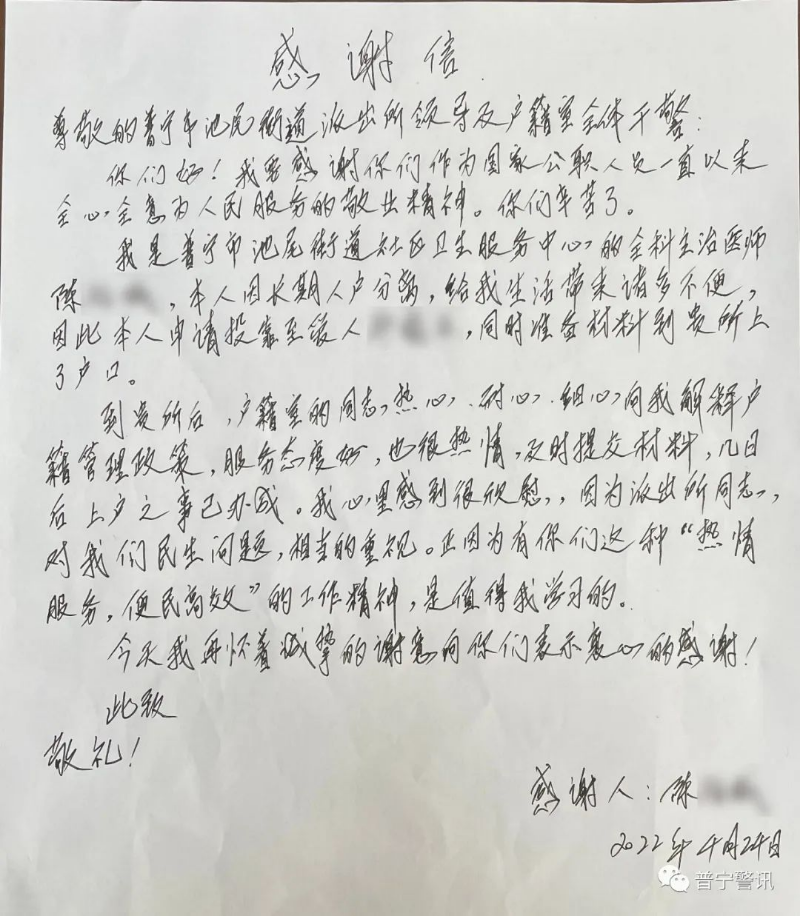 感谢信
尊敬的普宁市池尾街道派出所领导及户籍室全体干警:
你们好!我要感谢你们作为国家公职人员一直以来
全心全意为人民服务的敬业精神。你们辛苦了。
我是普宁市池尾街道社区卫生服务中心的全科主治医师
陈,本人因长期人户分离,给我生活带来诸多不便,
因此本人申请投靠至爱人,同时准备材料到贵所上
了户口。
到贵所后,户籍室的同志热心、耐心、细心向我解释户
籍管理政策,服务态度好,也很热情,及时提交材料,几日
后上户之事已办成。我心里感到很欣慰,因为派出所同志,
对我们民生问题,相当的重视。正因为有你们这种“热情
服务,便民高效”的工作精神,是值得我学习的。
今天我再怀着诚挚的谢意向你们表示衷心的感谢!
此致
敬礼!
感谢人:陈
2022年4月24日
普宁警讯